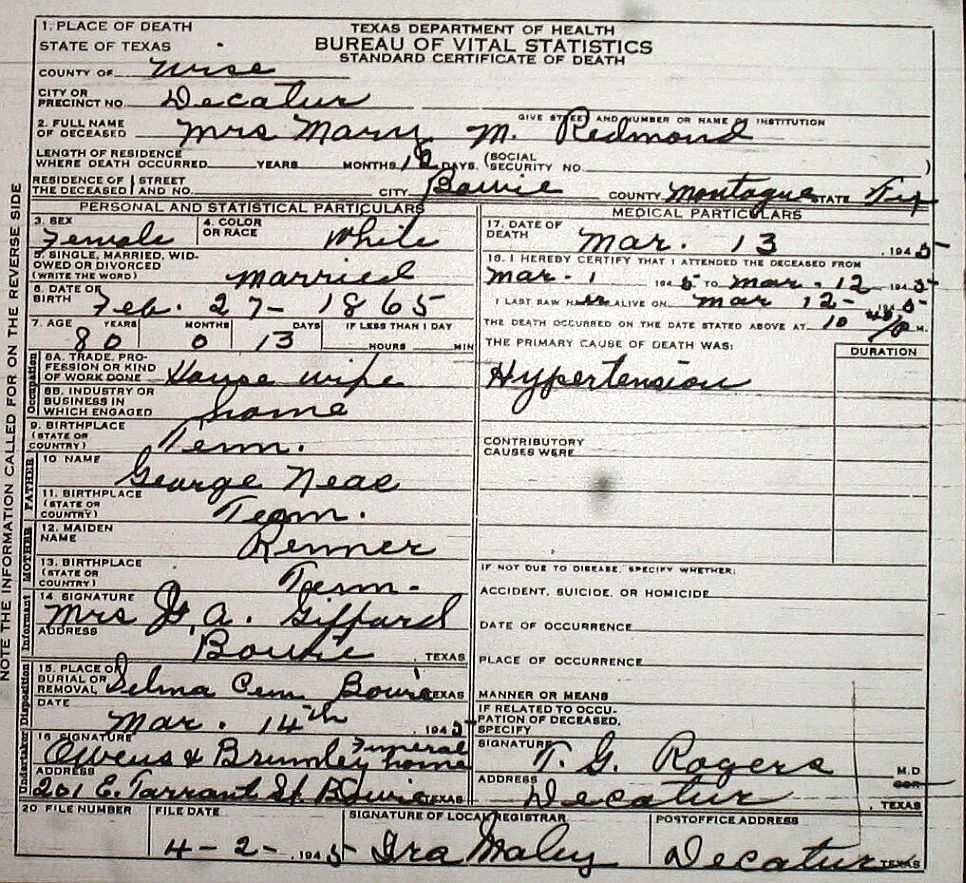 NOTE THE INFORMATION CALLED FOR ON THE REVERSE SIDE
TEXAS DEPARTMENT OF HEALTH
BUREAU OF VITAL STATISTICS
STANDARD CERTIFICATE OF DEATH
1. PLACE OF DEATH
STATE OF TEXAS
COUNTY OF Wise
CITY OR PRECINCT NO. Decatur
GIVE STREET AND NUMBER OR NAME OF INSTITUTION
2. FULL NAME OF DECEASED Mrs Mary M. Redmond
LENGTH OF RESIDENCE WHERE DEATH OCCURRED YEARS MONTHS DAYS. (SOCIAL SECURITY NO. )
RESIDENCE OF THE DECEASED STREET AND NO. CITY Bowie COUNTY Montague STATE Tex
PERSONAL AND STATISTICAL PARTICULARS
3. SEX Female 4. COLOR OR RACE White
5. SINGLE, MARRIED, WIDOWED OR DIVORCED (WRITE THE WORD) married
6. DATE OF BIRTH Feb. 27- 1865
7. AGE YEARS 80 MONTHS 0 DAYS 13 IF LESS THAN 1 DAY HOURS MIN
Occupation
8A. TRADE, PROFESSION OR KIND OF WORK DONE House wife
8B. INDUSTRY OR BUSINESS IN WHICH ENGAGED home
9. BIRTHPLACE (STATE OR COUNTRY) Tenn.
FATHER
10 NAME George Neas
11. BIRTHPLACE (STATE OR COUNTRY) Tenn.
MOTHER
12. MAIDEN NAME Renner
13. BIRTHPLACE (STATE OR COUNTRY) Tenn.
Informant
14 SIGNATURE Mrs J. A. Giffard
ADDRESS Bowie, TEXAS
Disposition
15. PLACE OF BURIAL OR REMOVAL Selma Cem Bowie TEXAS
DATE Mar. 14th 1945
Undertaker
16 SIGNATURE Owens & Brumley Funeral home
ADDRESS 201 E. Tarrant St. Bowie TEXAS
MEDICAL PARTICULARS
17. DATE OF DEATH Mar. 13, 1945
18. I HEREBY CERTIFY THAT I ATTENDED THE DECEASED FROM
Mar. 1 1945 TO Mar. 12 1945
I LAST SAW HER ALIVE ON Mar 12- 1945
THE DEATH OCCURRED ON THE DATE STATED ABOVE AT 10 P M.
THE PRIMARY CAUSE OF DEATH WAS: DURATION
Hypertension
CONTRIBUTORY CAUSES WERE
IF NOT DUE TO DISEASE, SPECIFY WHETHER:
ACCIDENT, SUICIDE, OR HOMICIDE
DATE OF OCCURRENCE
PLACE OF OCCURRENCE
MANNER OR MEANS
IF RELATED TO OCCUPATION OF DECEASED, SPECIFY
SIGNATURE T. G. Rogers M.D
ADDRESS Decatur, TEXAS
20 FILE NUMBER FILE DATE 4-2-, 1945
SIGNATURE OF LOCAL REGISTRAR Ira Maley
POSTOFFICE ADDRESS Decatur TEXAS